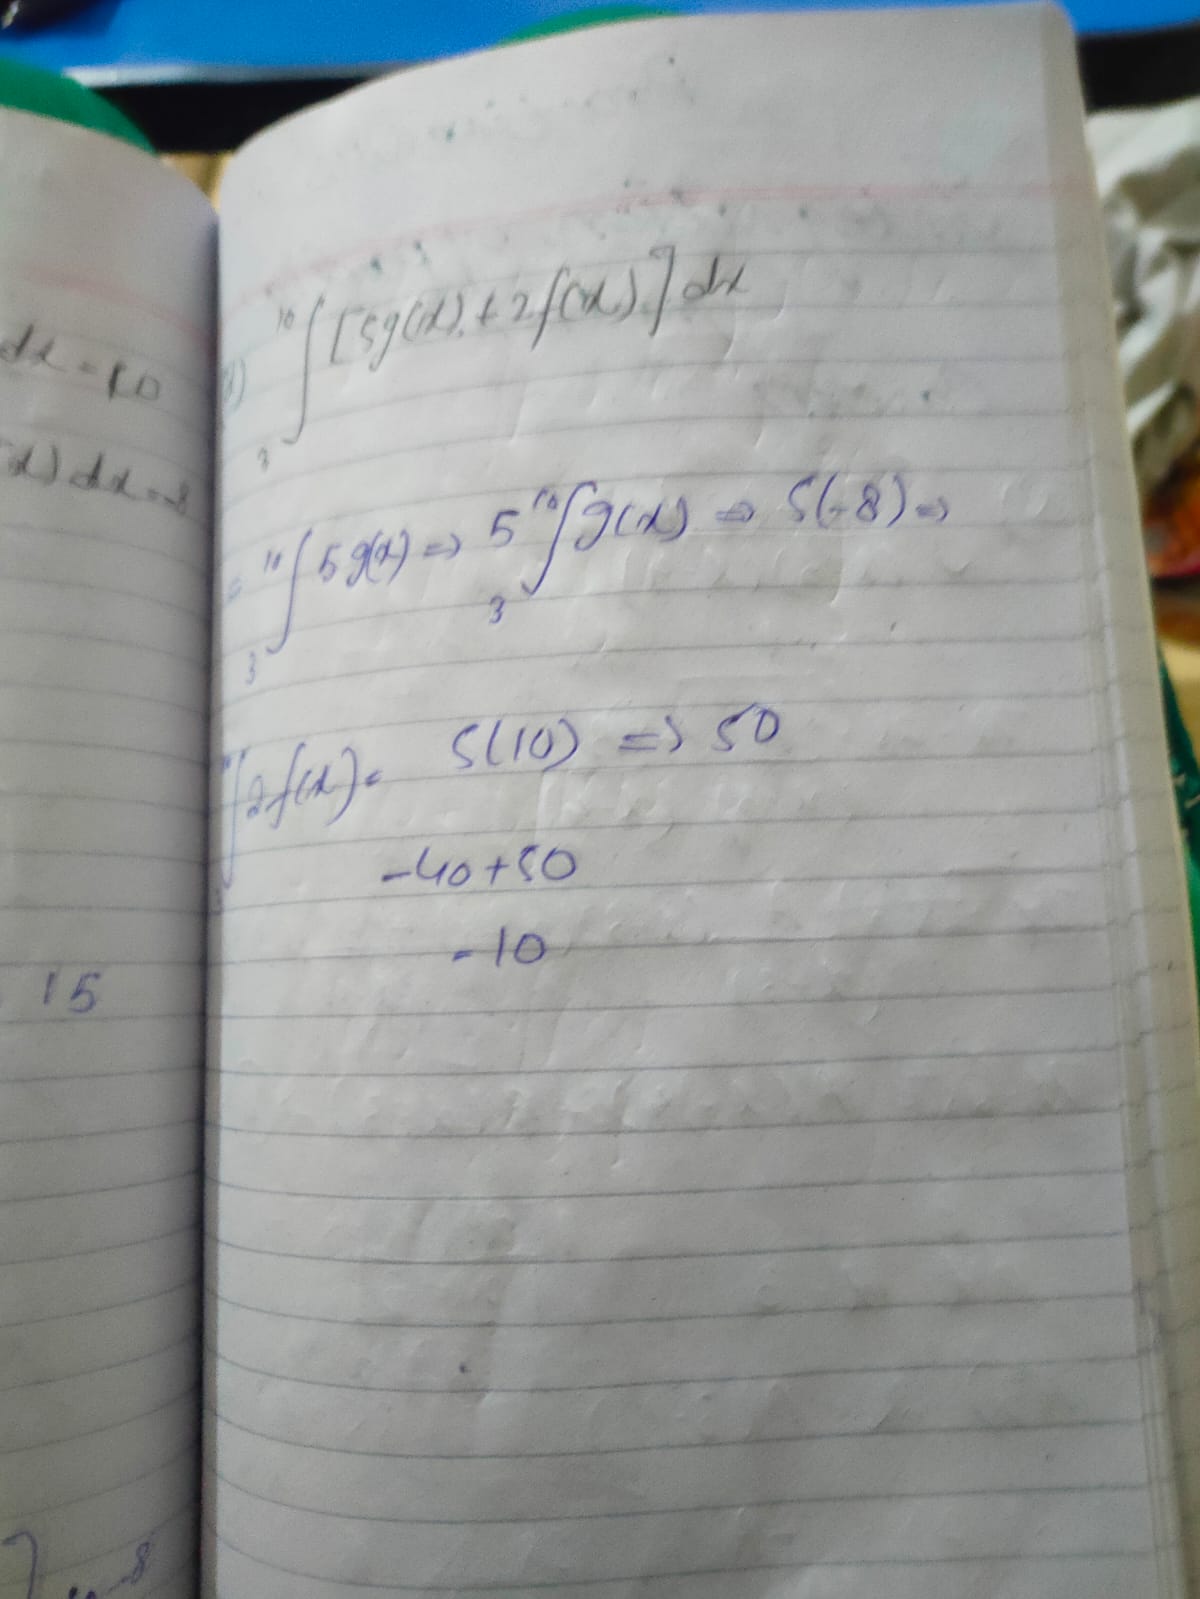 dx = 10
x) dx = -8
15
-8
10∫3 [5g(x) + 2f(x)] dx
= 10∫3 5g(x) => 5 10∫3 g(x) => 5(-8) =>
∫ 2f(x) = 5(10) => 50
-40+50
- 10